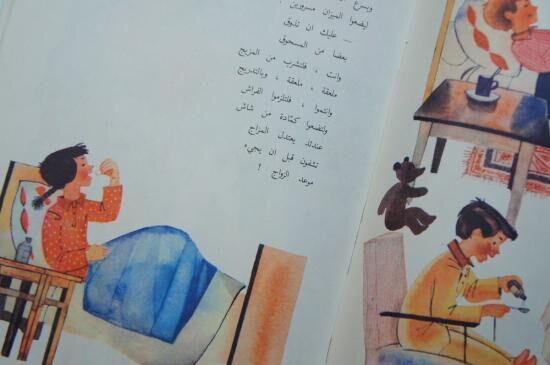 ويسرع
ليضعوا الميزان مسرورين
— عليك ان تذوق
بعضا من المسحوق
وانت ، فلتشرب من المزيج
ملعقة ، ملعقة ، وبالتدريج
وانتموا ، فلتلزموا الفراش
ولتضعوا كمّادة من شاش
عندئذ يعتدل المزاج
تشفون قبل ان يجيء
موعد الزواج !